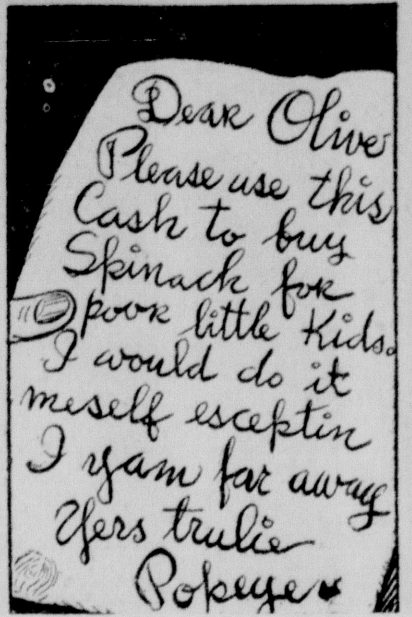 Dear Olive
Please use this
Cash to buy
Spinach for
poor little Kids.
I would do it
meself esceptin
I yam far away
Yers trulie
Popeye